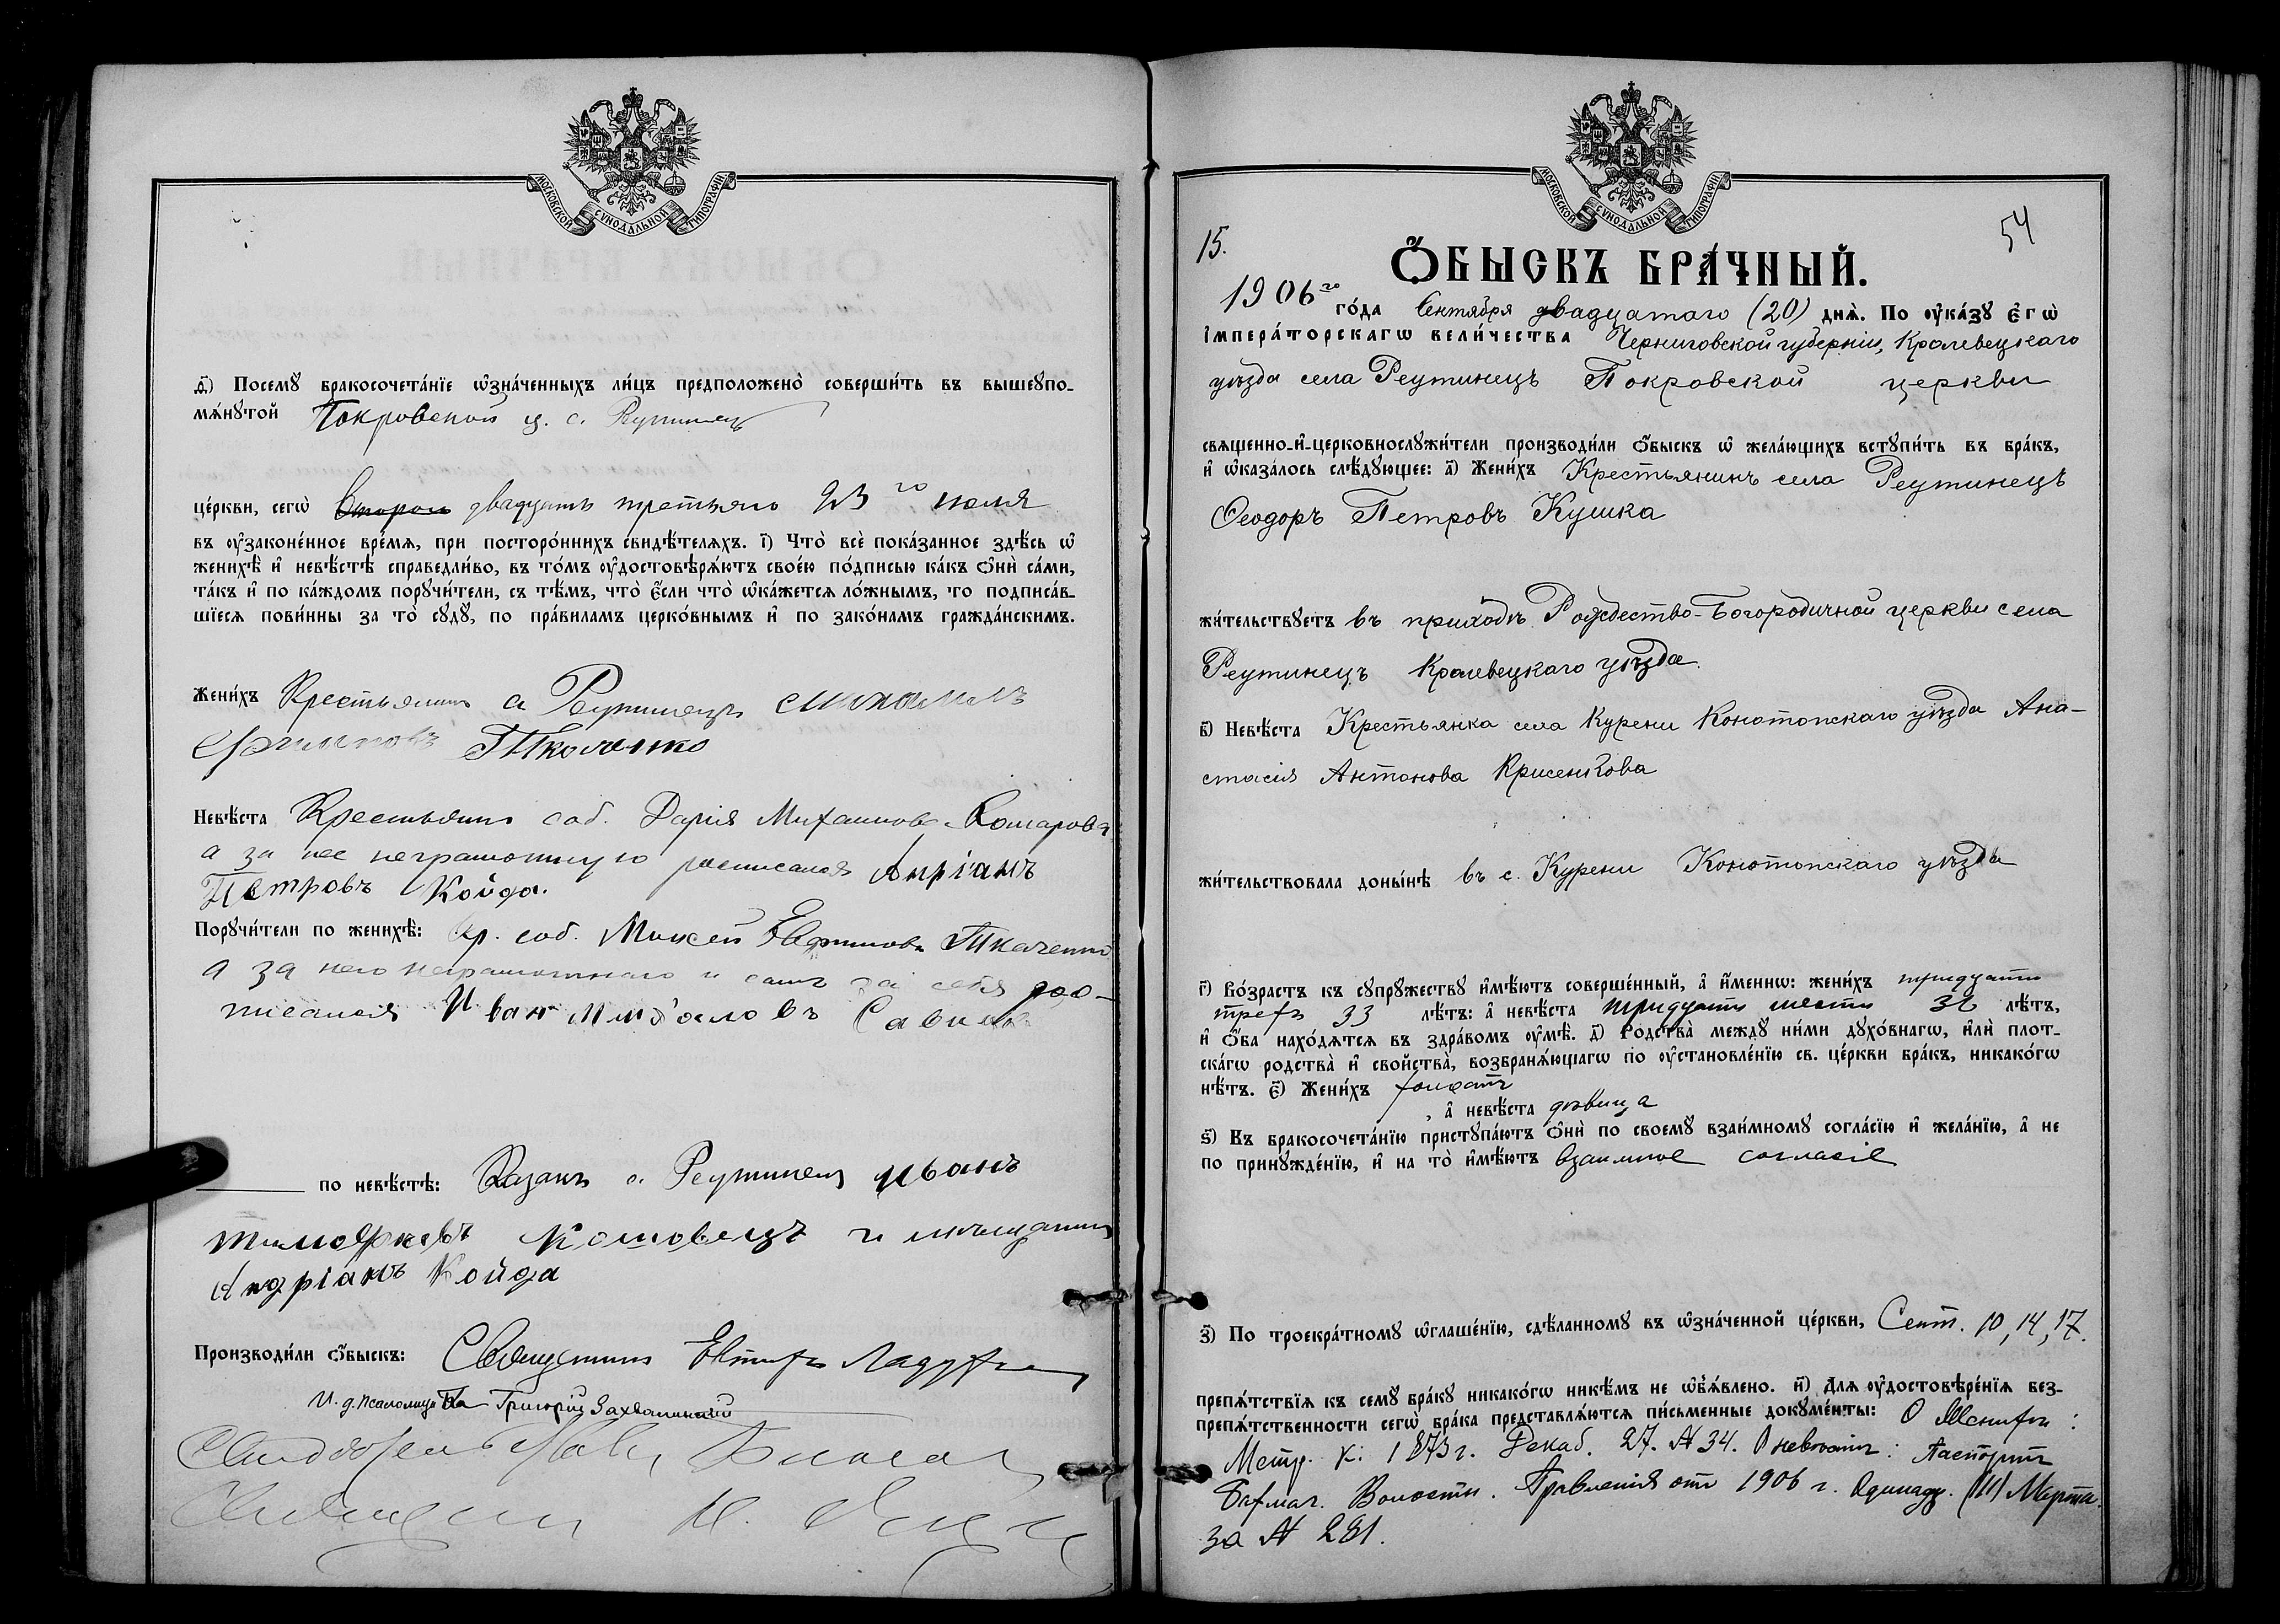 МОСКОВСКОЙ СѴНОДАЛЬНОЙ ТИПОГРАФІИ
д҃і) Посемꙋ̀ бракосочета́нїе ѡ҆зна́ченныхъ ли́цъ предположено̀ соверши́ть въ вышеꙋпо-
мѧ́нꙋтой Покровской ц. с. Реутинецъ
це́ркви, сегѡ̀ двадцать третьяго 23 го іюля
въ ᲂу҆законе́нное вре́мѧ, при посторо́ннихъ свидѣ́телѧхъ. і҃) Что̀ всѐ пока́занное здѣ́сь ѡ҆
женихѣ̀ и҆ невѣ́стѣ справедли́во, въ то́мъ ᲂу҆достовѣрѧ́ютъ свое́ю по́дписью ка́къ ѻ҆нѝ са́ми,
та́къ и҆ по ка́ждомъ порꙋчи́тели, съ тѣ́мъ, что̀ є҆́сли что̀ ѡ҆ка́жетсѧ ло́жнымъ, то подписа́в-
шїесѧ пови́нны за то̀ сꙋдꙋ̀, по пра́виламъ церко́внымъ и҆ по зако́намъ гражда́нскимъ.
Жени́хъ Крестьянинъ с. Реутинецъ Михаилъ
Ткаченко
Невѣ́ста Крестьянка соб. Дарія Михаилова Комарова
а за нее неграмотную росписался Андріанъ
Петровъ Койда.
Порꙋчи́тели по женихѣ̀: Кр. соб. Моисей Евфимовъ Ткаченко
а за него неграмотнаго и самъ за себя рос-
писался Иван Михаловъ
по невѣ́стѣ: Казакъ с. Реутинецъ Иванъ
Тимофеевъ и мещанинъ
Андріанъ Койда
Производи́ли ѻ҆́быскъ: Священникъ
И. д. псаломщика Григорій Захвалинскій
МОСКОВСКОЙ СѴНОДАЛЬНОЙ ТИПОГРАФІИ
15. 54
Ѻ҆́БЫСКЪ БРА́ЧНЫЙ.
1906го го́да Сентября двадцатаго (20) днѧ̀. По ᲂу҆ка́зꙋ є҆гѡ̀
і҆мпера́торскагѡ вели́чества Черниговской губерніи, Кролевецкаго
уѣзда села Реутинецъ Покровской церкви
свѧщенно-и҆-церковнослꙋжи́тели производи́ли ѻ҆́быскъ ѡ҆ жела́ющихъ встꙋпи́ть въ бра́къ,
и҆ ѡ҆каза́лось слѣ́дꙋющее: а҃) Жени́хъ Крестьянинъ села Реутинецъ
Ѳеодоръ Петровъ Кушка
жи́тельствꙋетъ въ приходѣ Рождество-Богородичной церкви села
Реутинецъ Кролевецкаго уѣзда.
в҃) Невѣ́ста Крестьянка села Курени Конотопскаго уѣзда Ана-
стасія Антонова Крисенкова
жи́тельствовала доны́нѣ въ с. Курени Конотопскаго уѣзда
г҃) Во́зрастъ къ сꙋпрꙋ́жествꙋ и҆мѣ́ютъ соверше́нный, а҆ и҆́меннѡ: жени́хъ тридцати
трехъ 33 лѣ́тъ: а҆ невѣ́ста тридцати шести 36 лѣ́тъ,
и҆ ѻ҆́ба нахо́дѧтсѧ въ здра́вомъ ᲂу҆мѣ̀. д҃) Родства̀ междꙋ̀ ни́ми дꙋхо́внагѡ, и҆лѝ плот-
ска́гѡ родства̀ и҆ свойства̀, возбранѧ́ющагѡ по ᲂу҆становле́нїю св. це́ркви бра́къ, никако́гѡ
нѣ́тъ. є҃) Жени́хъ холостъ
, а҆ невѣ́ста дѣвица
ѕ҃) Въ бракосочета́нїю пристꙋпа́ютъ ѻ҆нѝ по своемꙋ̀ взаи́мномꙋ согла́сїю и҆ жела́нїю, а҆ не
по принꙋжде́нїю, и҆ на то̀ и҆мѣ́ютъ взаимное согласіе
з҃) По троекра́тномꙋ ѡ҆глаше́нїю, сдѣ́ланномꙋ въ ѡ҆зна́ченной це́ркви, Сент. 10, 14, 17.
препѧ́тствїѧ къ семꙋ̀ бра́кꙋ никако́гѡ никѣ́мъ не ѡ҆б̾ѧ́влено. и҃) Длѧ ᲂу҆достовѣре́нїѧ без-
препѧ́тственности сегѡ̀ бра́ка представлѧ́ютсѧ пи́сьменные докꙋме́нты: О женихѣ:
Метр. к: 1873 г. Декаб. 27. № 34. О невѣстѣ: Паспортъ
Бахмач. Волостн. Правленія отъ 1906 г. Одинадц. (11) Марта
за № 281.